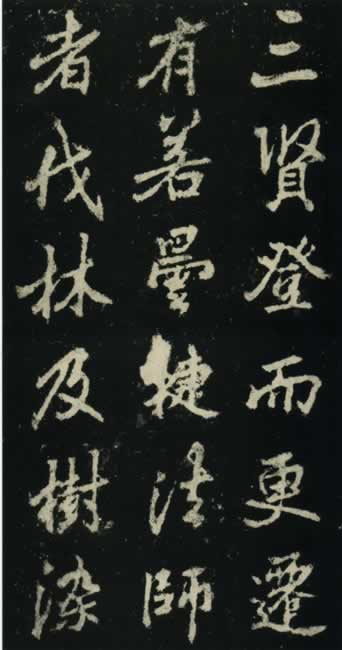 三賢登而更遷
有若曇揵法師
者伐林及樹染